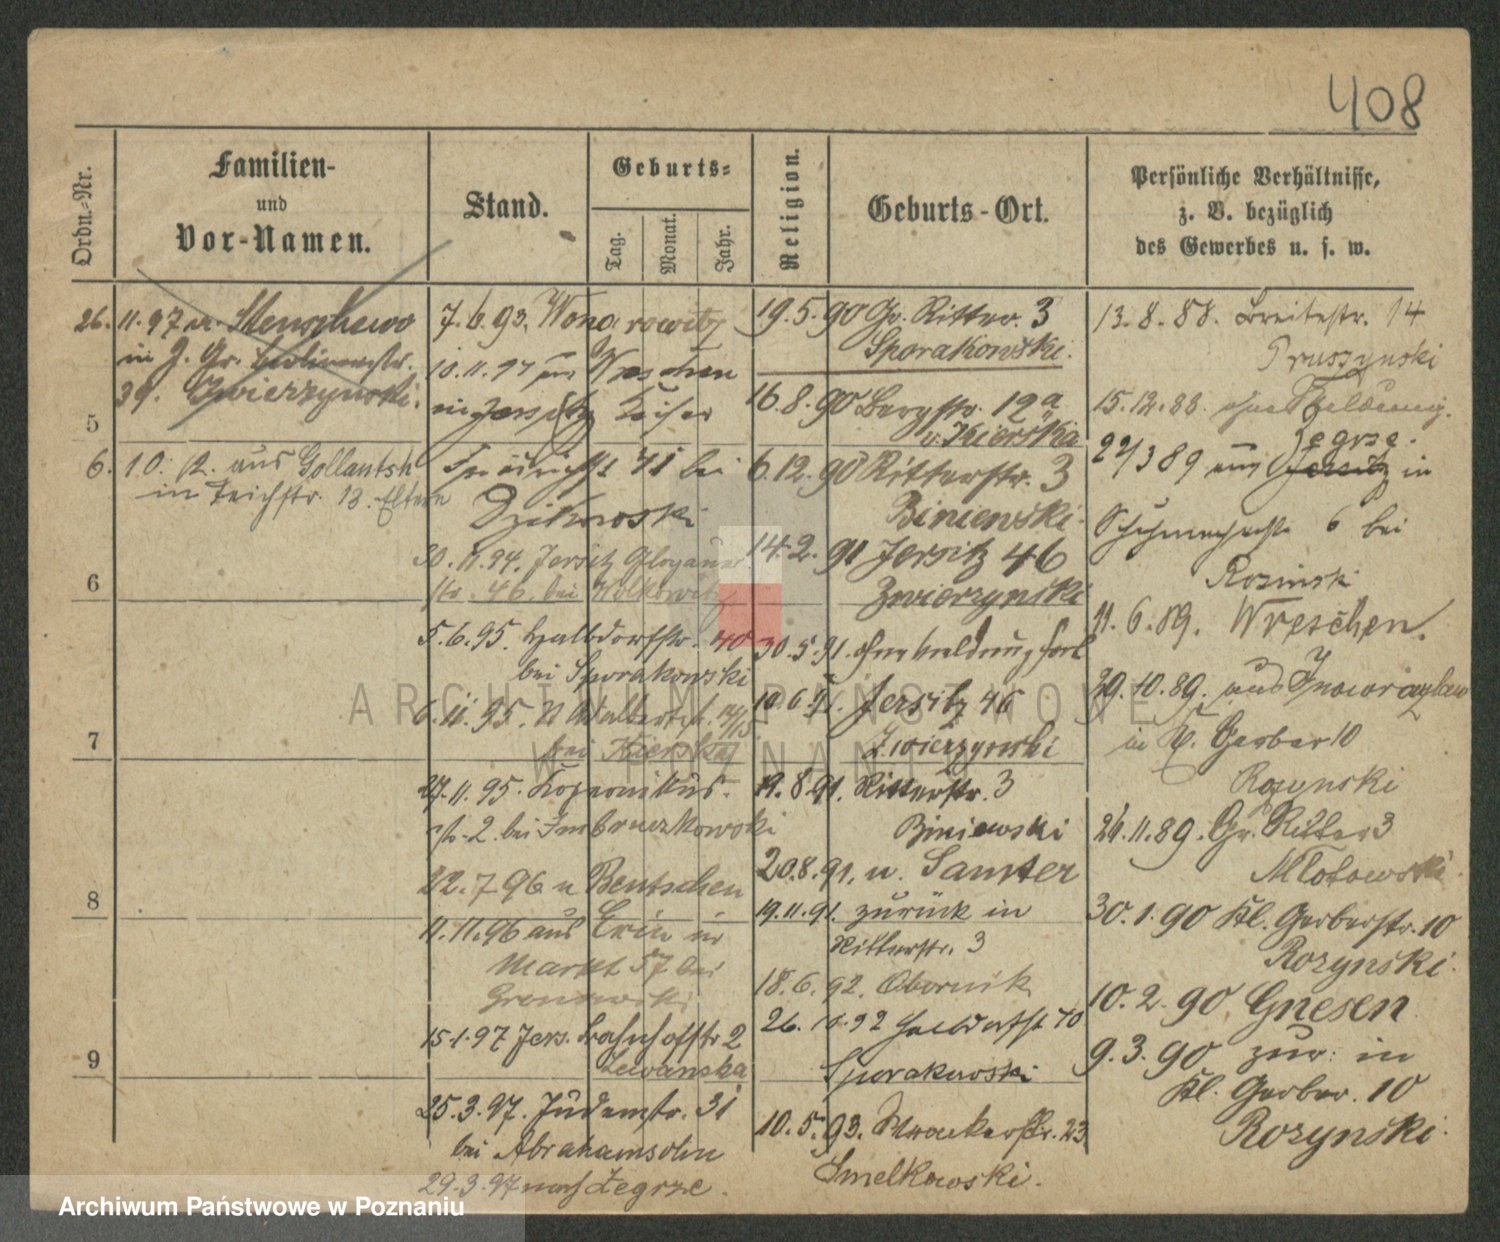 408
Ordn.-Nr.
Familien-
und
Vor-Namen.
Stand.
Geburts-
Tag.
Monat.
Jahr.
Religion.
Geburts-Ort.
Persönliche Verhältnisse,
z. B. bezüglich
des Gewerbes u. s. w.
26. 11. 97 n.
in J. Gr.
39. Zwierzynski.
5
6. 10. aus Gollantsch
in Teichstr. 13. Eltern
6
7
8
9
7. 6. 93. Wongrowitz
10. 11. 94 Wreschen
in Jersitz Kaiser
Friedrichst bei
Dzikowski
30. 11. 94. Jersitz Glogauer
str. 46. bei
5. 6. 95. Halbdorfstr. 40
bei Sporakowski
6. 11. 95.
bei Kierska
27. 11. 95. Kopernikus-
str. 2. bei
22. 7. 96 n Bentschen
11. 11. 96 aus Exin in
Markt 57 bei
15. 1. 97 Jers. Bahnhofstr 2
Lewanska
25. 3. 97. Judenstr. 31
bei Abrahamsohn
29. 3. 97 nach Zegrze.
19. 5. 90 Gr. Ritter. 3
Sporakowski.
16. 8. 90 Bergstr. 12a
v. Kierska
6. 12. 90 Ritterstr. 3
Biniewski.
14. 2. 91 Jersitz 46
Zwierzynski
30. 5. 91. ohne Meldung fort
10. 6. 91. Jersitz 46
Zwierzynski
19. 8. 91. Ritterstr. 3
Biniewski
20. 8. 91. n. Samter
19. 11. 91. zurück in
Ritterstr. 3
18. 6. 92. Obornik
26. 10. 92 Halbdorfst 40
Sporakowski
10. 5. 93. 23
Smelkowski.
13. 8. 88. Breitestr. 14
Pruszynski
15. 12. 88. ohne Meldung.
22/3 89 aus Jersitz Zegrze. in
Schuhmacherstr 6 bei
Rozinski
11. 6. 89. Wreschen.
29. 10. 89. aus Inowrazlaw
in Kl. Gerber 10
Rozynski
24. 11. 89. Gr. Ritter 3
Mlotowski.
30. 1. 90 Kl. Gerberstr. 10
Rozynski.
10. 2. 90 Gnesen
9. 3. 90 zur. in
Kl. Gerber. 10
Rozynski.
ARCHIWUM PAŃSTWOWE
W POZNANIU
Archiwum Państwowe w Poznaniu